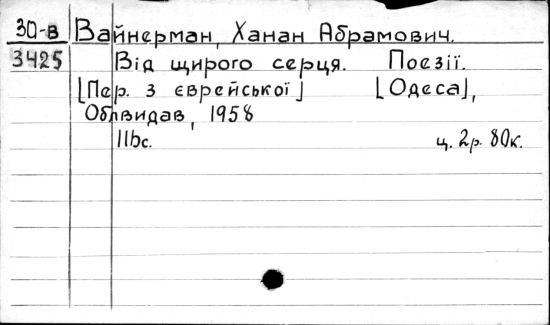 30-в Вайнерман, Ханан Абрамович.
3425 Від щирого серця. Поезії.
[Пер. з єврейської] [Одеса],
Облвидав, 1958
116с. ц. 2р. 80к.